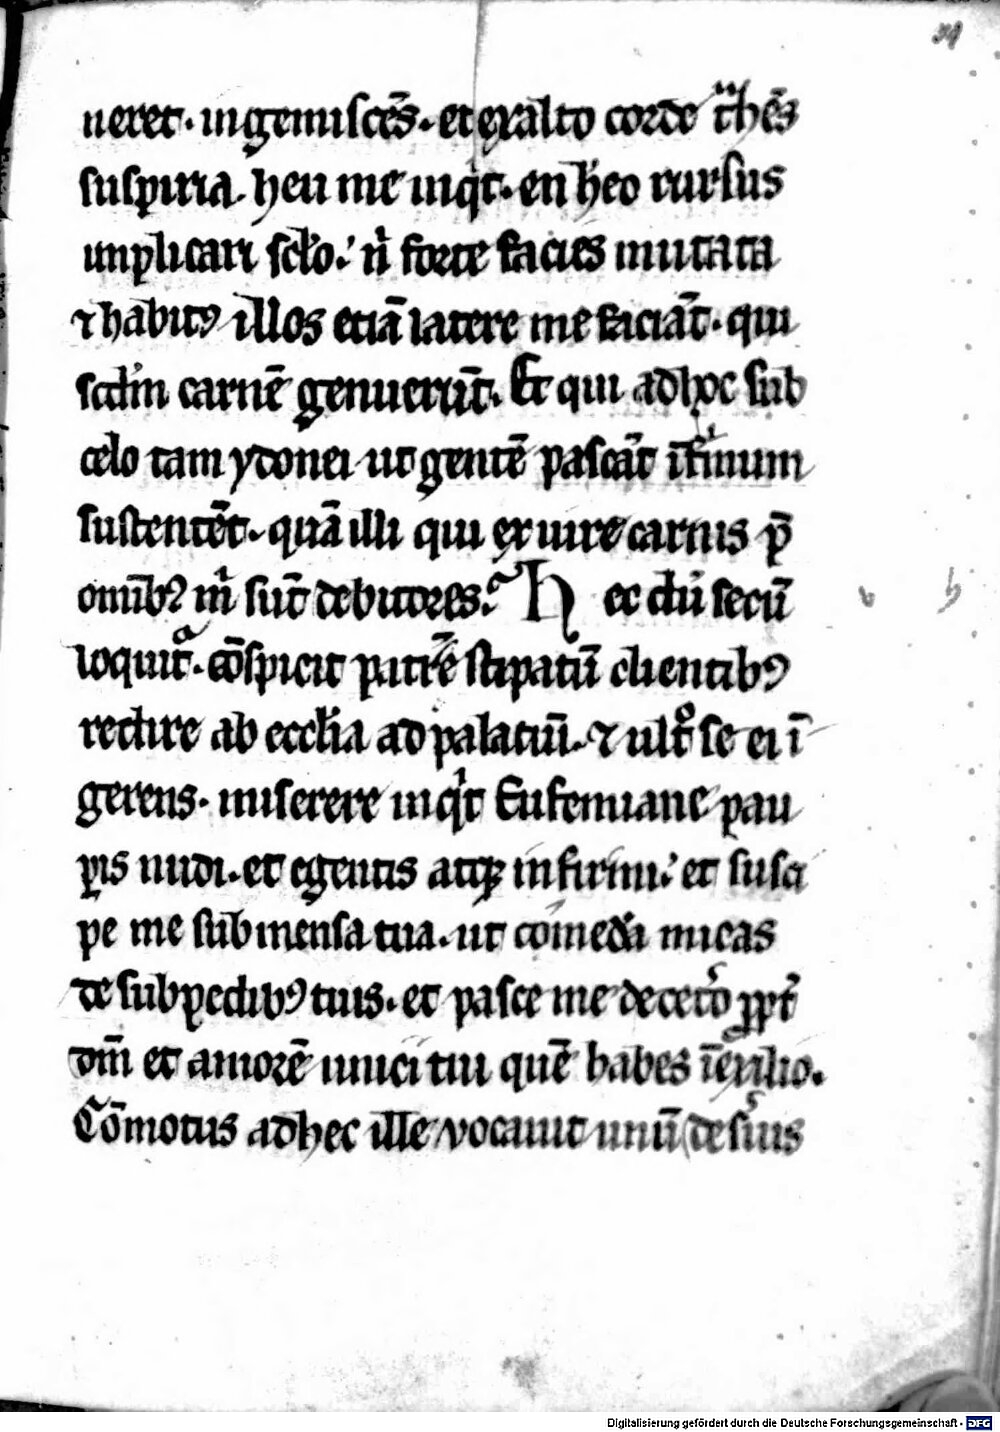 ueret. ingemiscēs. et ex alto corde t̃hēs
suspiria. heu me inqͥt. en hͥeo rursus
implicari sclo.ͬ nͥ forte facies mutata
⁊ habitꝰ illos etiā latere me faciāt. qui
scdm̄ carnē genuerūt. Et qui adhoc sub
celo tam ydonei ut gentē pascāt īfirmum
sustentēt. quā illi qui ex iure carnis p̄
omnibꝰ mͥ sūt debitores. Hec dū secū
loquitͣ. cōspicit patrē stipatū clientibꝰ
redire ab ecclīa ad palatiū. ⁊ ultͦ se ei ī
gerens. miserere inqͥt Eufemiane pau
ꝑis nudi. et egentis atqꝫ infirmi.ͬ et susci
pe me sub mensa tua. ut comedā micas
de sub pedibꝰ tuis. et pasce me de cetͦo ꝓpt̄
dm̄ et amorē unici tui quē habes ī exilio.
Cōmotus ad hec ille vocauit unū de suis
Digitalisierung gefördert durch die Deutsche Forschungsgemeinschaft - DFG